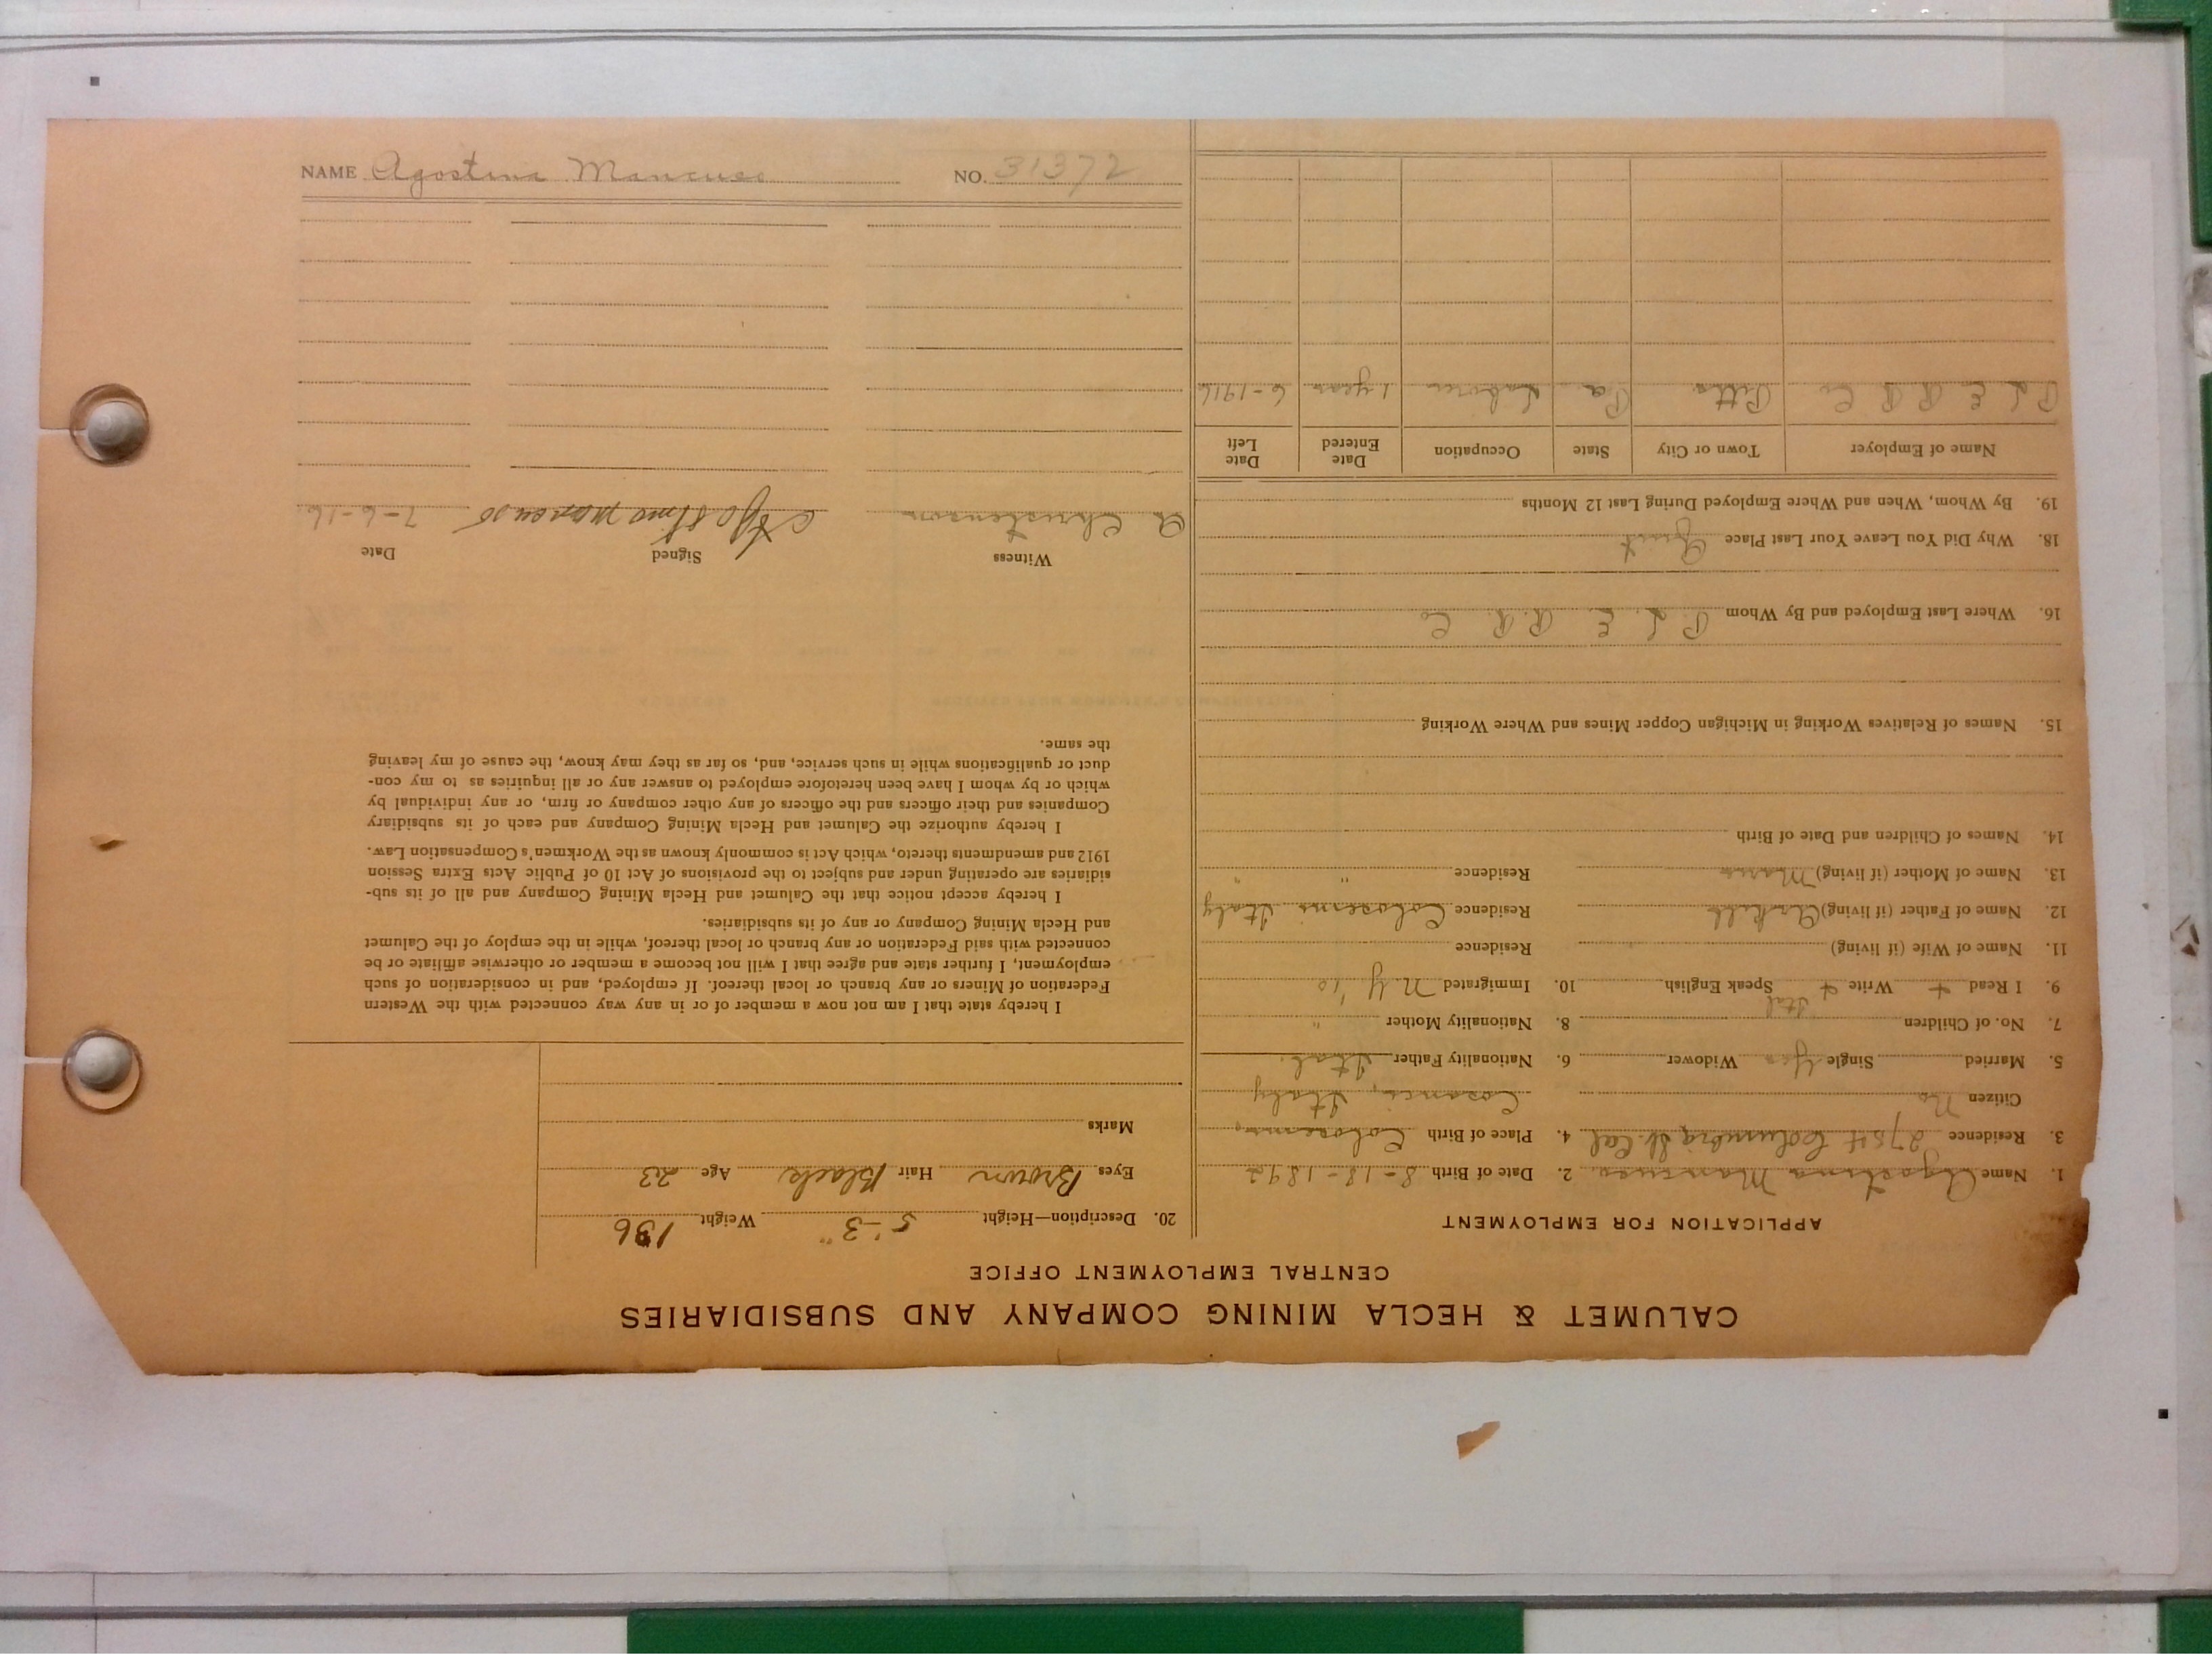 NAME Agostina Mancuso NO. 31372
CALUMET & HECLA MINING COMPANY AND SUBSIDIARIES
CENTRAL EMPLOYMENT OFFICE
APPLICATION FOR EMPLOYMENT
1. Name Agostina Mancuso 2. Date of Birth 8-18-1892
3. Residence 2754 Columbia St Cal 4. Place of Birth
Citizen No Italy
5. Married Single Yes Widower 6. Nationality Father Ital.
7. No. of Children 8. Nationality Mother "
9. I Read + Write + Ital Speak English 10. Immigrated N Y '10
11. Name of Wife (if living) Residence
12. Name of Father (if living) Residence Italy
13. Name of Mother (if living) Maria Residence " "
14. Names of Children and Date of Birth
15. Names of Relatives Working in Michigan Copper Mines and Where Working
16. Where Last Employed and By Whom P. L. E. R. R. Co
18. Why Did You Leave Your Last Place Quit
19. By Whom, When and Where Employed During Last 12 Months
Name of Employer Town or City State Occupation Date Entered Date Left
P L E R R Co Pitts Pa Laborer 1 year 6-1916
20. Description—Height 5'-3" Weight 136
Eyes Brown Hair Black Age 23
Marks
I hereby state that I am not now a member of or in any way connected with the Western
Federation of Miners or any branch or local thereof. If employed, and in consideration of such
employment, I further state and agree that I will not become a member or otherwise affiliate or be
connected with said Federation or any branch or local thereof, while in the employ of the Calumet
and Hecla Mining Company or any of its subsidiaries.
I hereby accept notice that the Calumet and Hecla Mining Company and all of its sub-
sidiaries are operating under and subject to the provisions of Act 10 of Public Acts Extra Session
1912 and amendments thereto, which Act is commonly known as the Workmen's Compensation Law.
I hereby authorize the Calumet and Hecla Mining Company and each of its subsidiary
Companies and their officers and the officers of any other company or firm, or any individual by
which or by whom I have been heretofore employed to answer any or all inquiries as to my con-
duct or qualifications while in such service, and, so far as they may know, the cause of my leaving
the same.
Witness Signed Date
A Christenson Agostino Mancuso 7-6-16